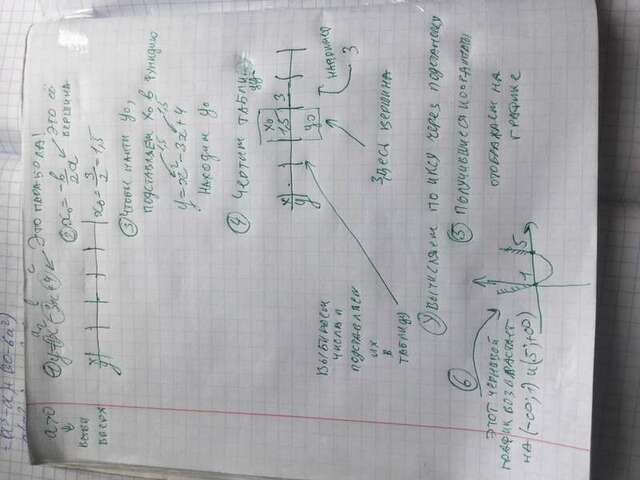 a>0
ветви
вверх
① y=x²-3x+4 ← Это парабола!
② x₀ = -b/2a ← это её
вершина
x₀ = 3/2 = 1,5
x
y
③ Чтобы найти y₀,
подставляем x₀ в функцию
y=x²-3x+4
1,5 1,5
Находим y₀
④ Чертим таблицу
x x₀ 1,5 3
y y₀
например
3
Здесь вершина
Выбираем
числа и
подставляем
их
в
таблицу
Вычисляем по иксу через подстановку
⑤ Получившиеся координаты
отображаем на
графике
⑥
Этот черновой
график возрастает
на (-∞; 1) и (5; +∞)
1 5